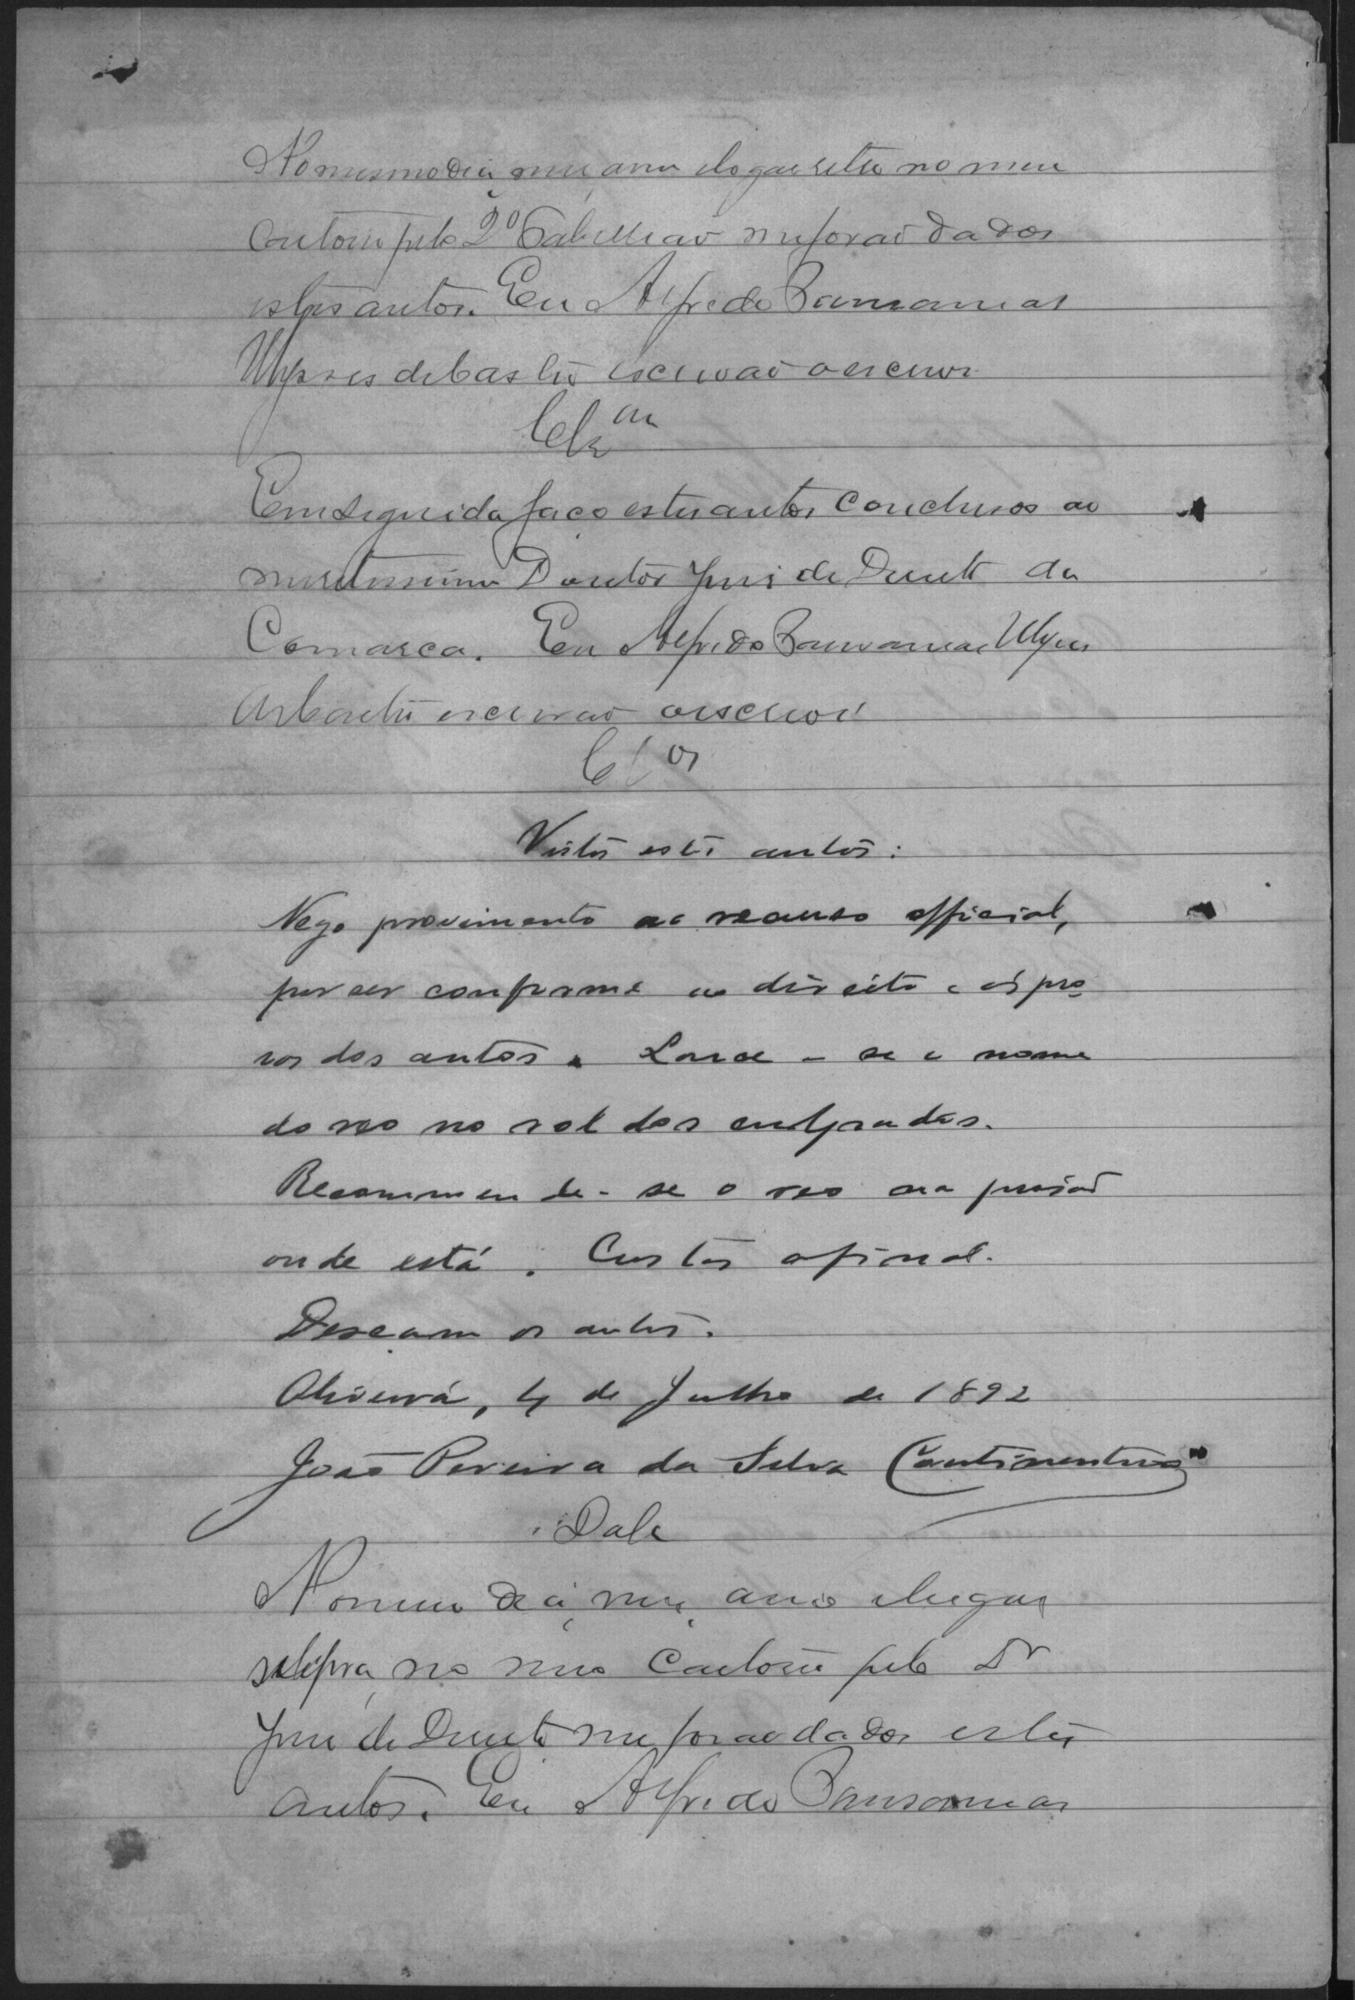 No mesmo dia, mez, anno e logar retro no meu
Cartorio pelo 2º Tabellião me forão dados
estes autos. Eu Alfredo Pausanias
Ulysses de Castro escrivão o escrevi
Clsam
Em seguida faço estes autos conclusos ao
meretissimo Doutor Juis de Direito da
Comarca. Eu Alfredo Pausanias Ulysses
de Castro escrivão o escrevi
Clos
Vistos estes autos:
Nego provimento ao recurso official,
por ser conforme ao direito e ás pro
vas dos autos. Lance-se o nome
do reo no rol dos culpados.
Recommende-se o reo na prisão
onde está. Custas afinal.
Desçam os autos.
Oliveira, 4 de Julho de 1892
João Pereira da Silva Continentino
Data
No mesmo dia, mez, anno e lugar
supra, no meu Cartorio pelo Dr
Juis de Direito me forão dados estes
autos. Eu Alfredo Pausanias